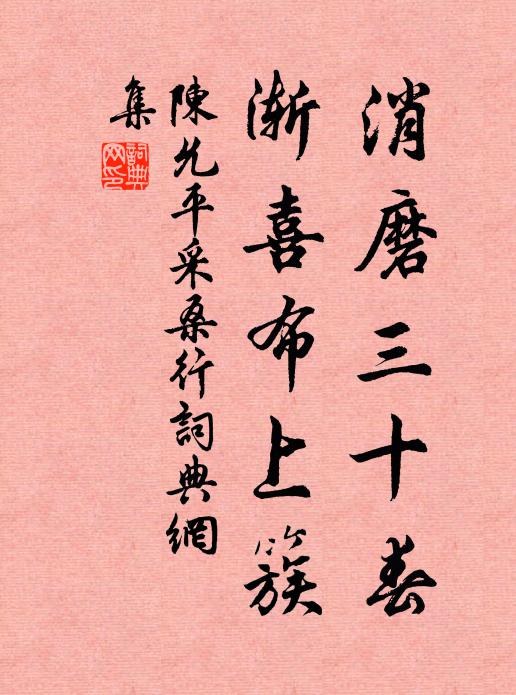 消磨三十春
漸喜布上簇
陳允平采桑行詞典網
集
詞典網印